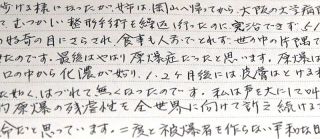 歩ける様になったが、姉は、岡山へ帰ってから、大阪の大学病院
てむつかしい整形手術を繰返し行ったのに完治できず
の好奇の目にさらされ、食事も人前でとれず、世の中の片隅で
たのです。最後はやはり原爆症だったと思います。原爆は
口の中から化濃が始り、1、2ヶ月後には皮膚はとけ
むせん、はづれて無くなったのです。私は声を大にして叫
的原爆の残虐性を全世界に向けて訴え続けます
命だと思っています。二度と被爆者を作らない平和な